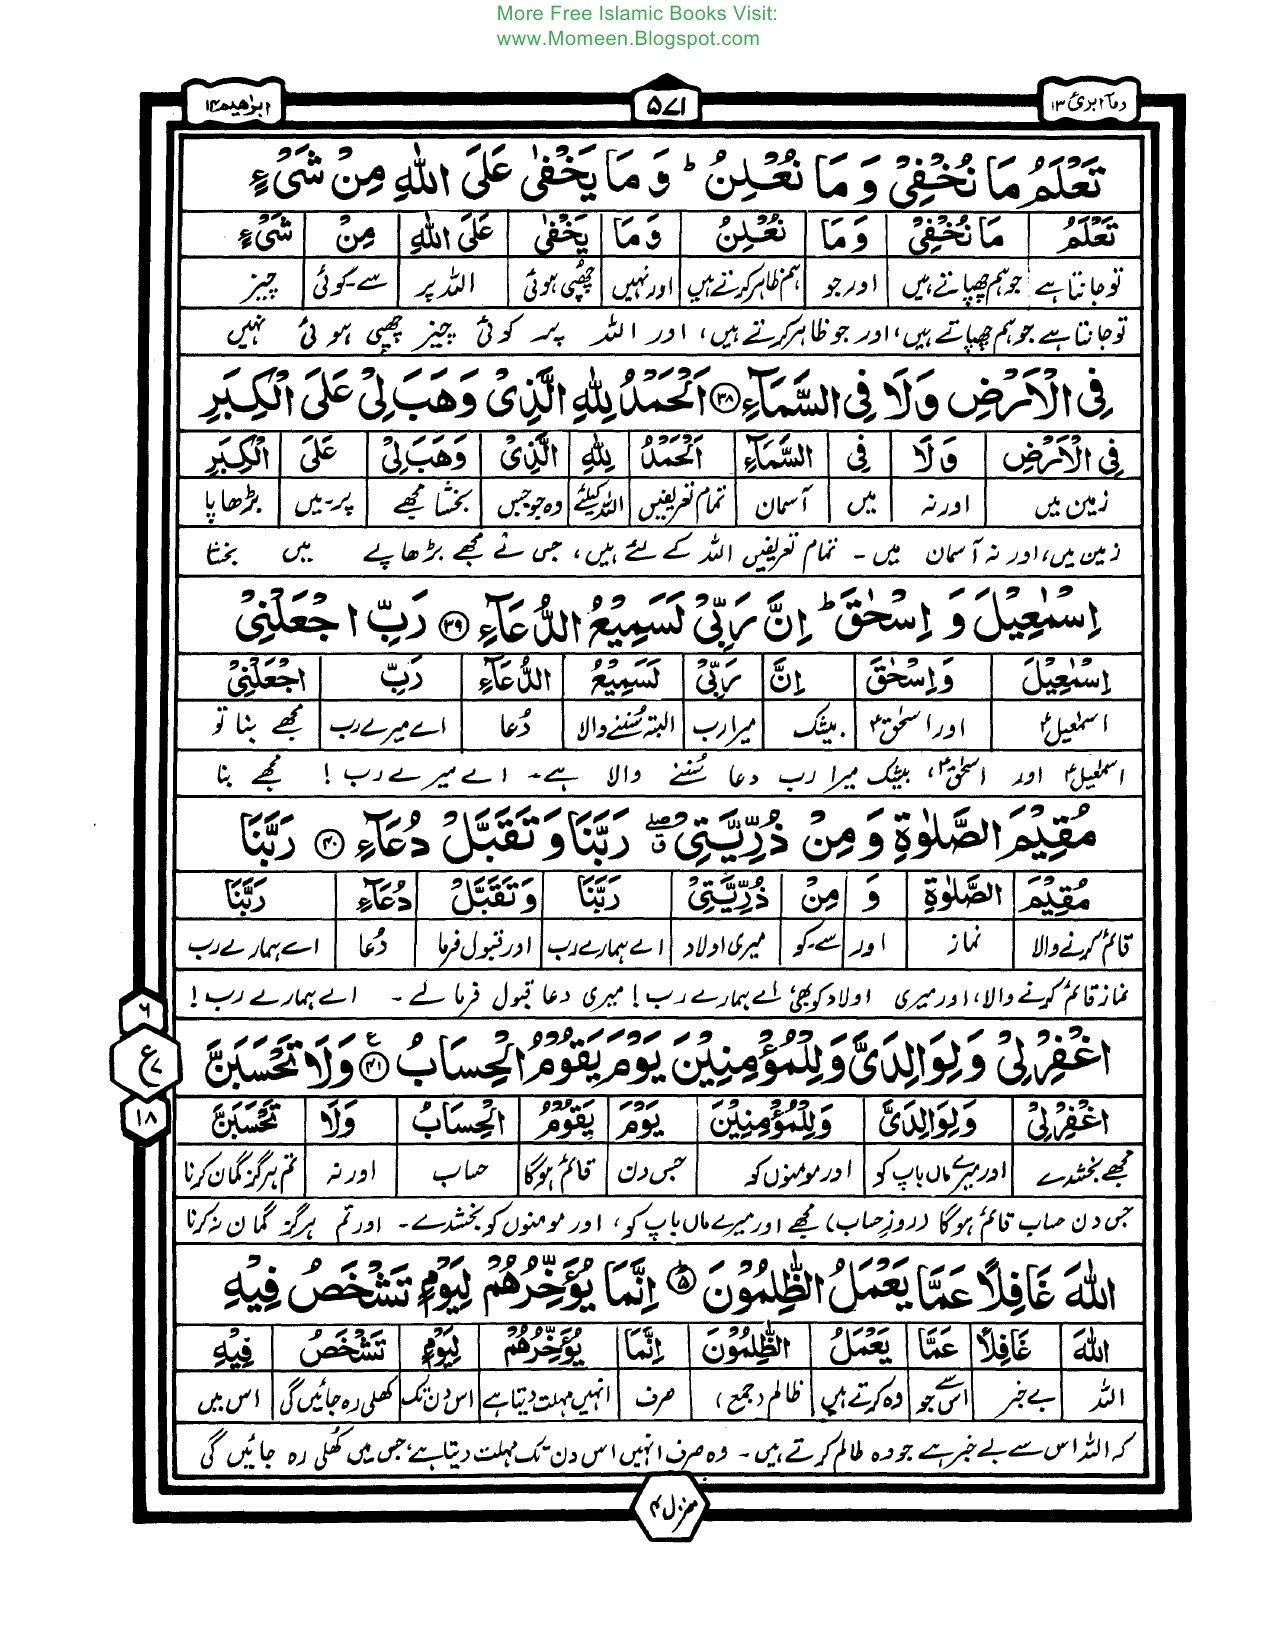 More Free Islamic Books Visit:
www.Momeen.Blogspot.com
وما ابرئ ۱۳
۵۷۱
ابراھیم ۱۴
تَعْلَمُ مَا نُخْفِیْ وَ مَا نُعْلِنُ ؕ وَ مَا یَخْفٰی عَلَی اللّٰهِ مِنْ شَیْءٍ
تَعْلَمُ مَا نُخْفِیْ وَ مَا نُعْلِنُ وَ مَا یَخْفٰی عَلَی اللّٰهِ مِنْ شَیْءٍ
تو جانتا ہے جو ہم چھپاتے ہیں اور جو ہم ظاہر کرتے ہیں اور نہیں چھپی ہوئی اللہ پر سے۔کوئی چیز
تو جانتا ہے جو ہم چھپاتے ہیں، اور جو ظاہر کرتے ہیں، اور اللہ پر کوئی چیز چھپی ہوئی نہیں
فِی الْاَرْضِ وَلَا فِی السَّمَآءِ ۳۸ اَلْحَمْدُ لِلّٰهِ الَّذِیْ وَهَبَ لِیْ عَلَی الْکِبَرِ
فِی الْاَرْضِ وَلَا فِی السَّمَآءِ اَلْحَمْدُ لِلّٰهِ الَّذِیْ وَهَبَ لِیْ عَلَی الْکِبَرِ
زمین میں اور نہ میں آسمان تمام تعریفیں اللہ کیلئے وہ جو جس بخشا مجھے پر۔میں بڑھاپا
زمین میں، اور نہ آسمان میں ۔ تمام تعریفیں اللہ کے لئے ہیں، جس نے مجھے بڑھاپے میں بخشا
اِسْمٰعِیْلَ وَ اِسْحٰقَ ؕ اِنَّ رَبِّیْ لَسَمِیْعُ الدُّعَآءِ ۳۹ رَبِّ اجْعَلْنِیْ
اِسْمٰعِیْلَ وَ اِسْحٰقَ اِنَّ رَبِّیْ لَسَمِیْعُ الدُّعَآءِ رَبِّ اجْعَلْنِیْ
اسمٰعیلؑ اور اسحٰقؑ بیشک میرا رب البتہ سُننے والا دُعا اے میرے رب مجھے بنا تو
اسمٰعیلؑ اور اسحٰقؑ، بیشک میرا رب دعا سُننے والا ہے۔ اے میرے رب ! مجھے بنا
مُقِیْمَ الصَّلٰوةِ وَ مِنْ ذُرِّیَّتِیْ ۖ رَبَّنَا وَ تَقَبَّلْ دُعَآءِ ۴۰ رَبَّنَا
مُقِیْمَ الصَّلٰوةِ وَ مِنْ ذُرِّیَّتِیْ رَبَّنَا وَ تَقَبَّلْ دُعَآءِ رَبَّنَا
قائم کرنے والا نماز اور سے۔کو میری اولاد اے ہمارے رب اور قبول فرما دُعا اے ہمارے رب
نماز قائم کرنے والا، اور میری اولاد کو بھی، اے ہمارے رب! میری دعا قبول فرما لے ۔ اے ہمارے رب !
۶
ع
۷
۱۸
اغْفِرْ لِیْ وَ لِوَالِدَیَّ وَ لِلْمُؤْمِنِیْنَ یَوْمَ یَقُوْمُ الْحِسَابُ ۴۱ وَلَا تَحْسَبَنَّ
اغْفِرْ لِیْ وَ لِوَالِدَیَّ وَ لِلْمُؤْمِنِیْنَ یَوْمَ یَقُوْمُ الْحِسَابُ وَلَا تَحْسَبَنَّ
مجھے بخشدے اور میرے ماں باپ کو اور مومنوں کو جس دن قائم ہوگا حساب اور نہ تم ہرگز گمان کرنا
جس دن حساب قائم ہوگا (روزِ حساب) مجھے اور میرے ماں باپ کو، اور مومنوں کو بخشدے ۔ اور تم ہرگز گمان نہ کرنا
اللّٰهَ غَافِلًا عَمَّا یَعْمَلُ الظّٰلِمُوْنَ ؕ۵ اِنَّمَا یُؤَخِّرُهُمْ لِیَوْمٍ تَشْخَصُ فِیْهِ
اللّٰهَ غَافِلًا عَمَّا یَعْمَلُ الظّٰلِمُوْنَ اِنَّمَا یُؤَخِّرُهُمْ لِیَوْمٍ تَشْخَصُ فِیْهِ
اللہ بے خبر اس سے جو وہ کرتے ہیں ظالم (جمع) صرف انہیں مہلت دیتا ہے اس دن تک کھلی رہ جائیں گی اس میں
کہ اللہ اس سے بے خبر ہے جو وہ ظالم کرتے ہیں ۔ وہ صرف انہیں اس دن تک مہلت دیتا ہے، جس میں کھلی رہ جائیں گی
منزل ۳